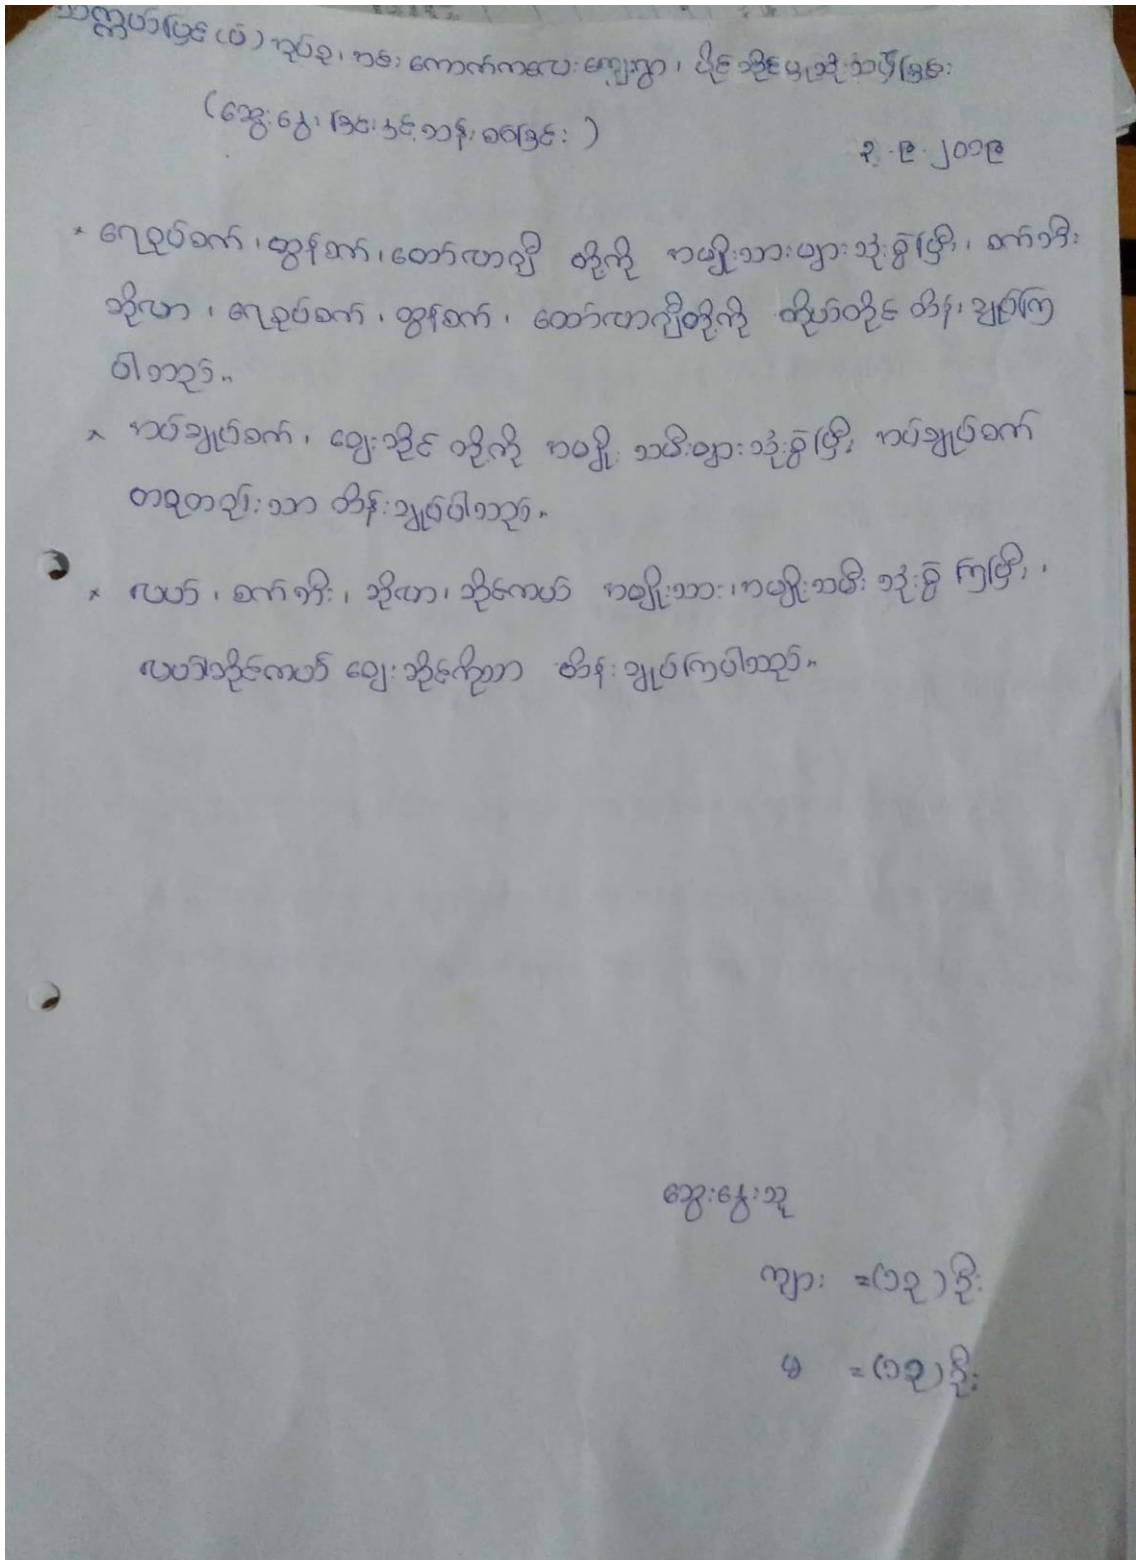 သက္ကယ်ပြင် (ပ) အုပ်စု၊ အစ်းကောက်ကလေးကျေးရွာ၊ ပိုင်ဆိုင်မှုသုံးသပ်ခြင်း
(ဆွေးနွေးခြင်းနှင့်သန့်စင်ခြင်း)
၃.၉.၂၀၁၉
* ရေစုပ်စက်၊ ထွန်စက်၊ တော်လာဂျီ တို့ကို အမျိုးသားများသုံးစွဲပြီး၊ စက်ဘီး
ဆိုလာ၊ ရေစုပ်စက်၊ ထွန်စက်၊ ထော်လာဂျီတို့ကို ကိုယ်တိုင် ထိန်းချုပ်ကြ
ပါသည်။
* အပ်ချုပ်စက်၊ ဈေးဆိုင် တို့ကို အမျိုးသမီးများသုံးစွဲပြီး အပ်ချုပ်စက်
တခုတည်းသာ ထိန်းချုပ်ပါသည်။
* လယ်၊ စက်ဘီး၊ ဆိုလာ၊ ဆိုင်ကယ် အမျိုးသား၊ အမျိုးသမီး သုံးစွဲကြပြီး၊
လယ်၊ ဆိုင်ကယ် ဈေးဆိုင်ကိုသာ ထိန်းချုပ်ကြပါသည်။
ဆွေးနွေးသူ
ကျား =(၁၃)ဦး
မ =(၁၃)ဦး